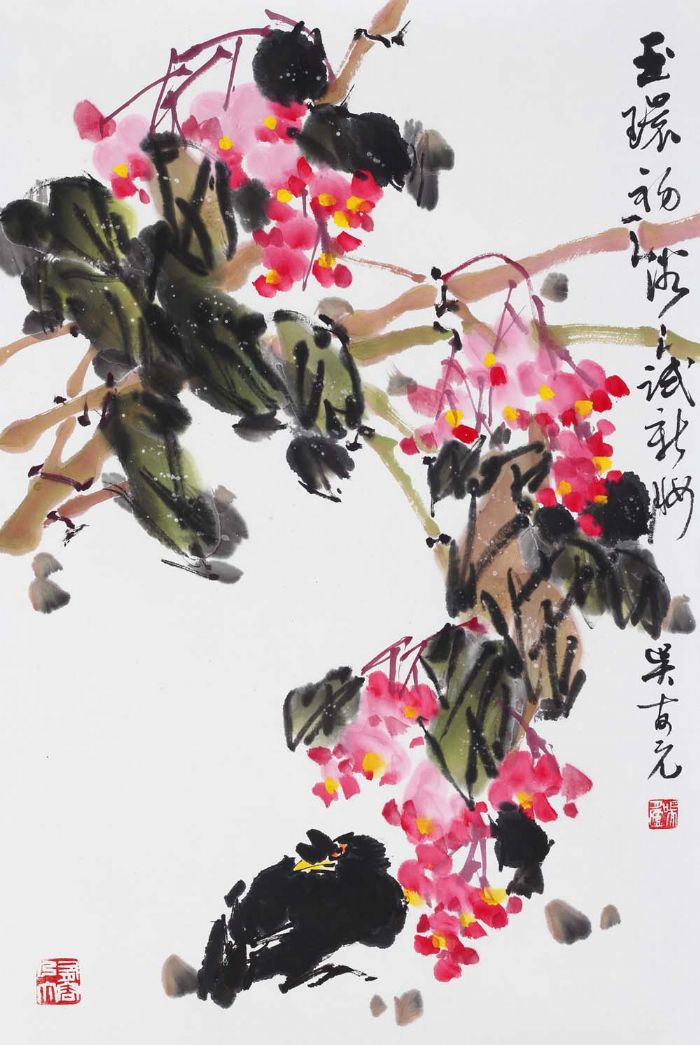 玉環初浴試新妝
吴元